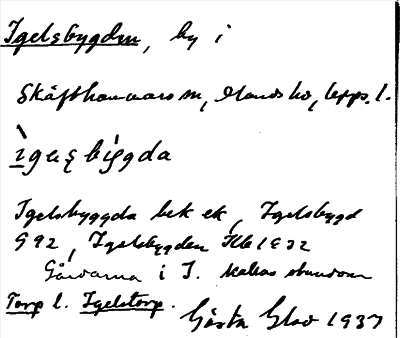 Igelsbygden, by i
Skäfthammars sn, Olands hd, Upps. l.
Igelsbyggda bek ek, Igelsbygd
G 92, Igelsbygden Hlb 1832
Gårdarna i I. kallas stundom
Torp l. Igelstorp.
Gösta 1937